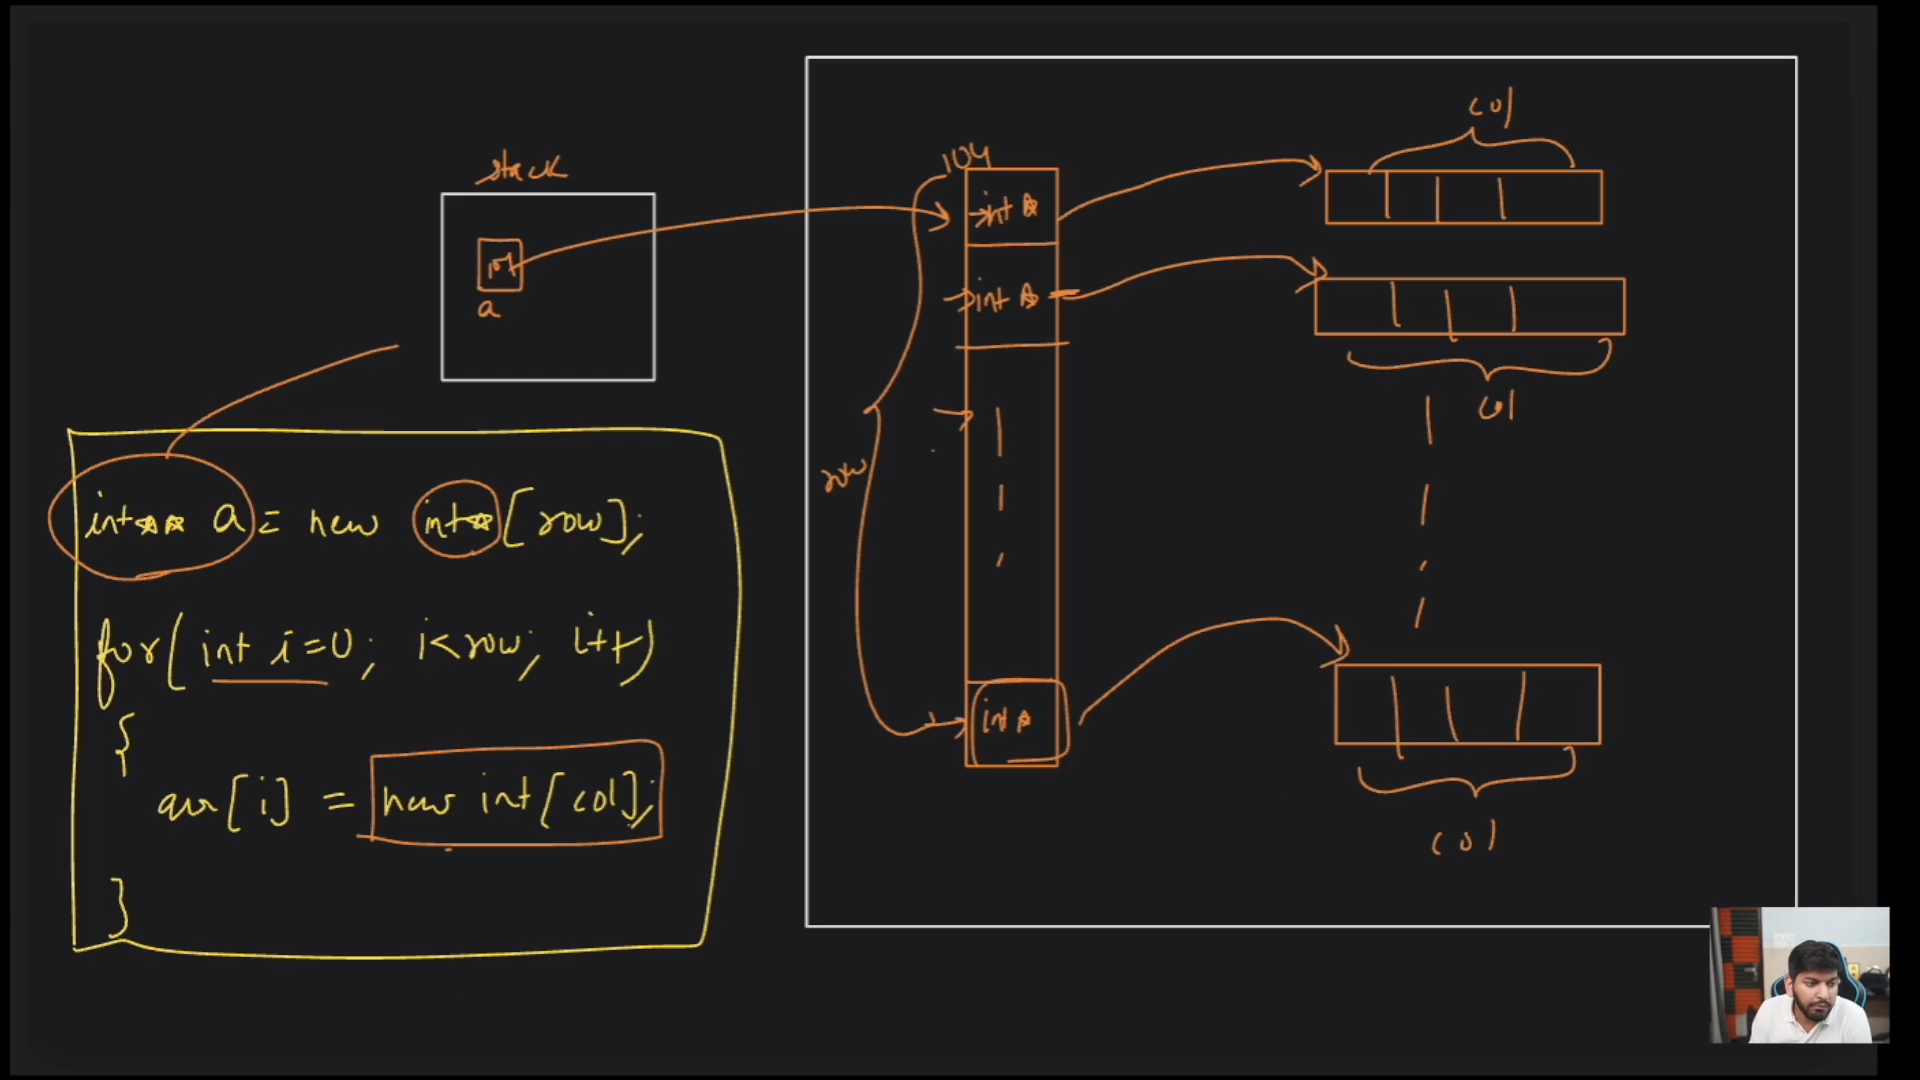 stack
104
a
int** a = new int*[row];
for( int i=0; i<row; i++)
{
arr[i] = new int[col];
}
104
int *
int *
row
int *
col
col
col